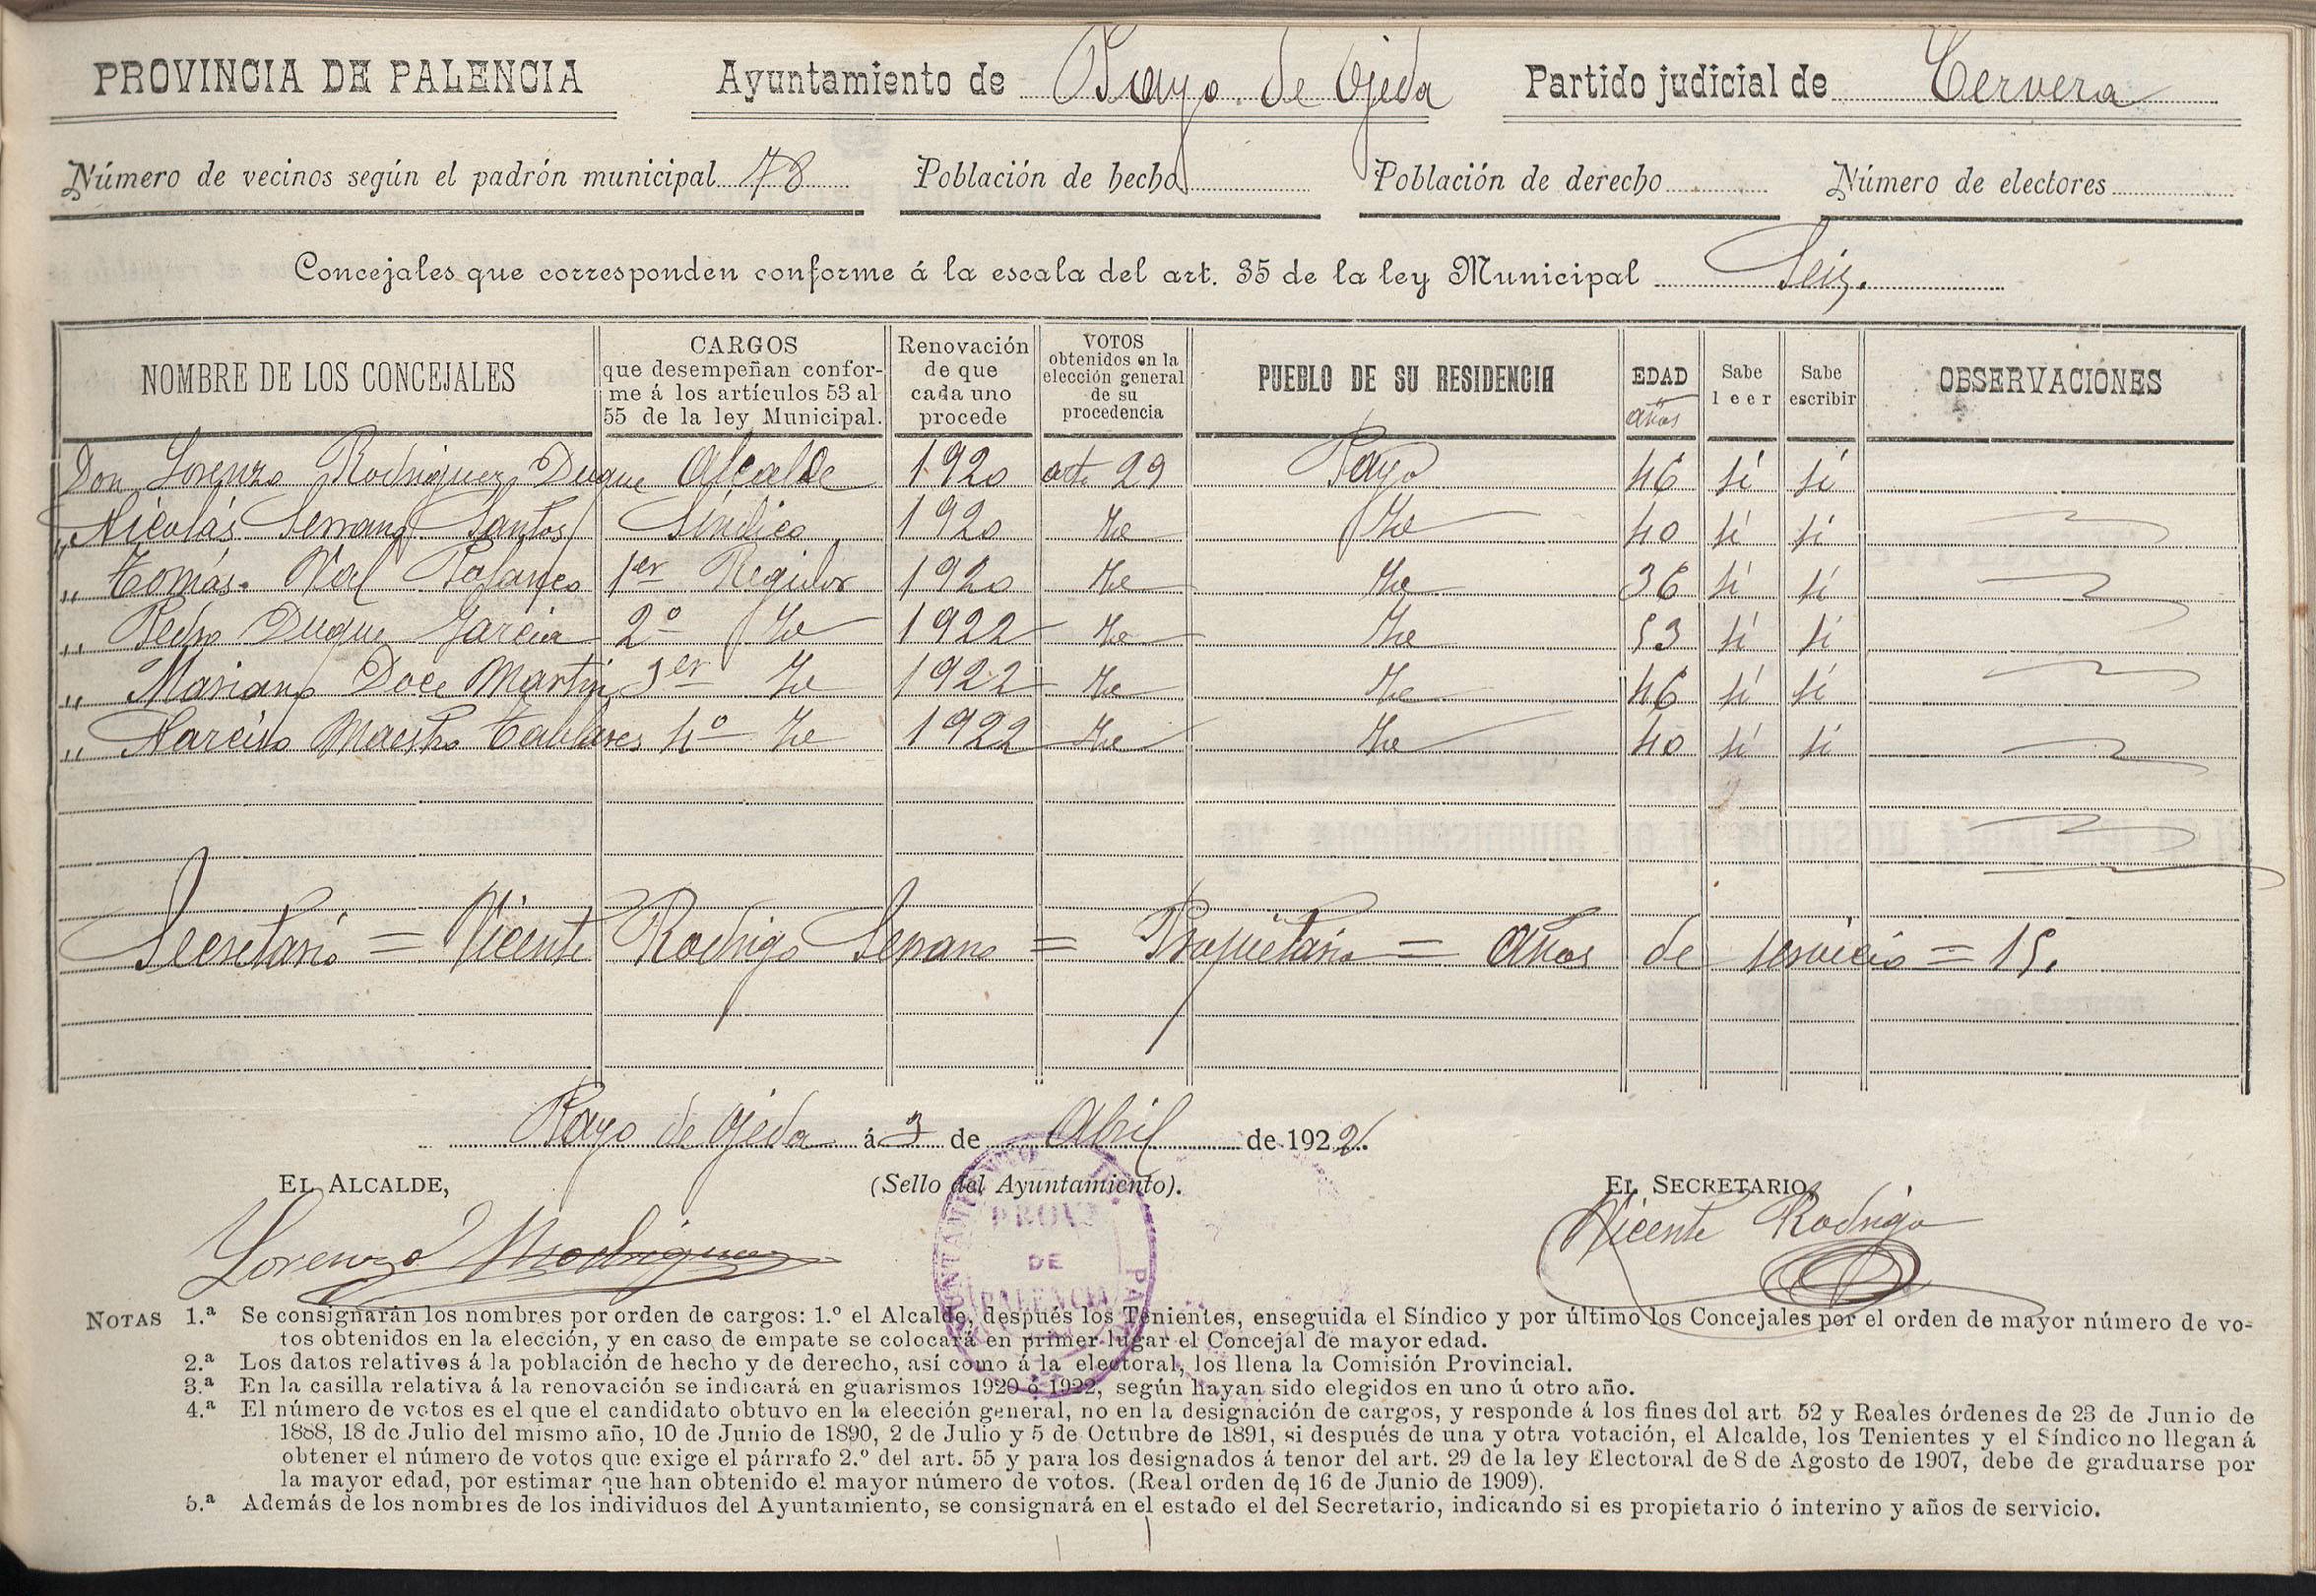 PROVINCIA DE PALENCIA Ayuntamiento de Payo de Ojeda Partido judicial de Cervera
Número de vecinos según el padrón municipal 78 Población de hecho Población de derecho Número de electores
Concejales que corresponden conforme á la escala del art. 35 de la ley Municipal Seis.
NOMBRE DE LOS CONCEJALES
CARGOS
que desempeñan confor-
me á los artículos 53 al
55 de la ley Municipal.
Renovación
de que
cada uno
procede
VOTOS
obtenidos en la
elección general
de su
procedencia
PUEBLO DE SU RESIDENCIA
EDAD
años
Sabe
leer
Sabe
escribir
OBSERVACIONES
Don Lorenzo Rodriguez Duque Alcalde 1920 art 29 Payo 46 sí sí
" Nicolás Serrano Santos Síndico 1920 40 sí sí
" Tomás Val 1er Regidor 1920 36 sí sí
" Pedro Duque García 2º 1922 53 sí sí
" Mariano Doce Martín 3er 1922 46 sí sí
" Narciso Maestro 4º 1922 40 sí sí
Secretario = Vicente Rodrigo Serrano = Propietario = Años de servicio = 15.
Payo de Ojeda á 3 de Abril de 1922.
EL ALCALDE, (Sello del Ayuntamiento). EL SECRETARIO,
Lorenzo Rodriguez
Vicente Rodrigo
AYUNTAMIENTO
PROVª
DE
PALENCIA
NOTAS 1.ª Se consignarán los nombres por orden de cargos: 1.º el Alcalde, después los Tenientes, enseguida el Síndico y por último los Concejales por el orden de mayor número de vo-
tos obtenidos en la elección, y en caso de empate se colocará en primer lugar el Concejal de mayor edad.
2.ª Los datos relativos á la población de hecho y de derecho, así como á la electoral, los llena la Comisión Provincial.
3.ª En la casilla relativa á la renovación se indicará en guarismos 1920 ó 1922, según hayan sido elegidos en uno ú otro año.
4.ª El número de votos es el que el candidato obtuvo en la elección general, no en la designación de cargos, y responde á los fines del art 52 y Reales órdenes de 23 de Junio de
1888, 18 de Julio del mismo año, 10 de Junio de 1890, 2 de Julio y 5 de Octubre de 1891, si después de una y otra votación, el Alcalde, los Tenientes y el Síndico no llegan á
obtener el número de votos que exige el párrafo 2.º del art. 55 y para los designados á tenor del art. 29 de la ley Electoral de 8 de Agosto de 1907, debe de graduarse por
la mayor edad, por estimar que han obtenido el mayor número de votos. (Real orden de 16 de Junio de 1909).
5.ª Además de los nombres de los individuos del Ayuntamiento, se consignará en el estado el del Secretario, indicando si es propietario ó interino y años de servicio.